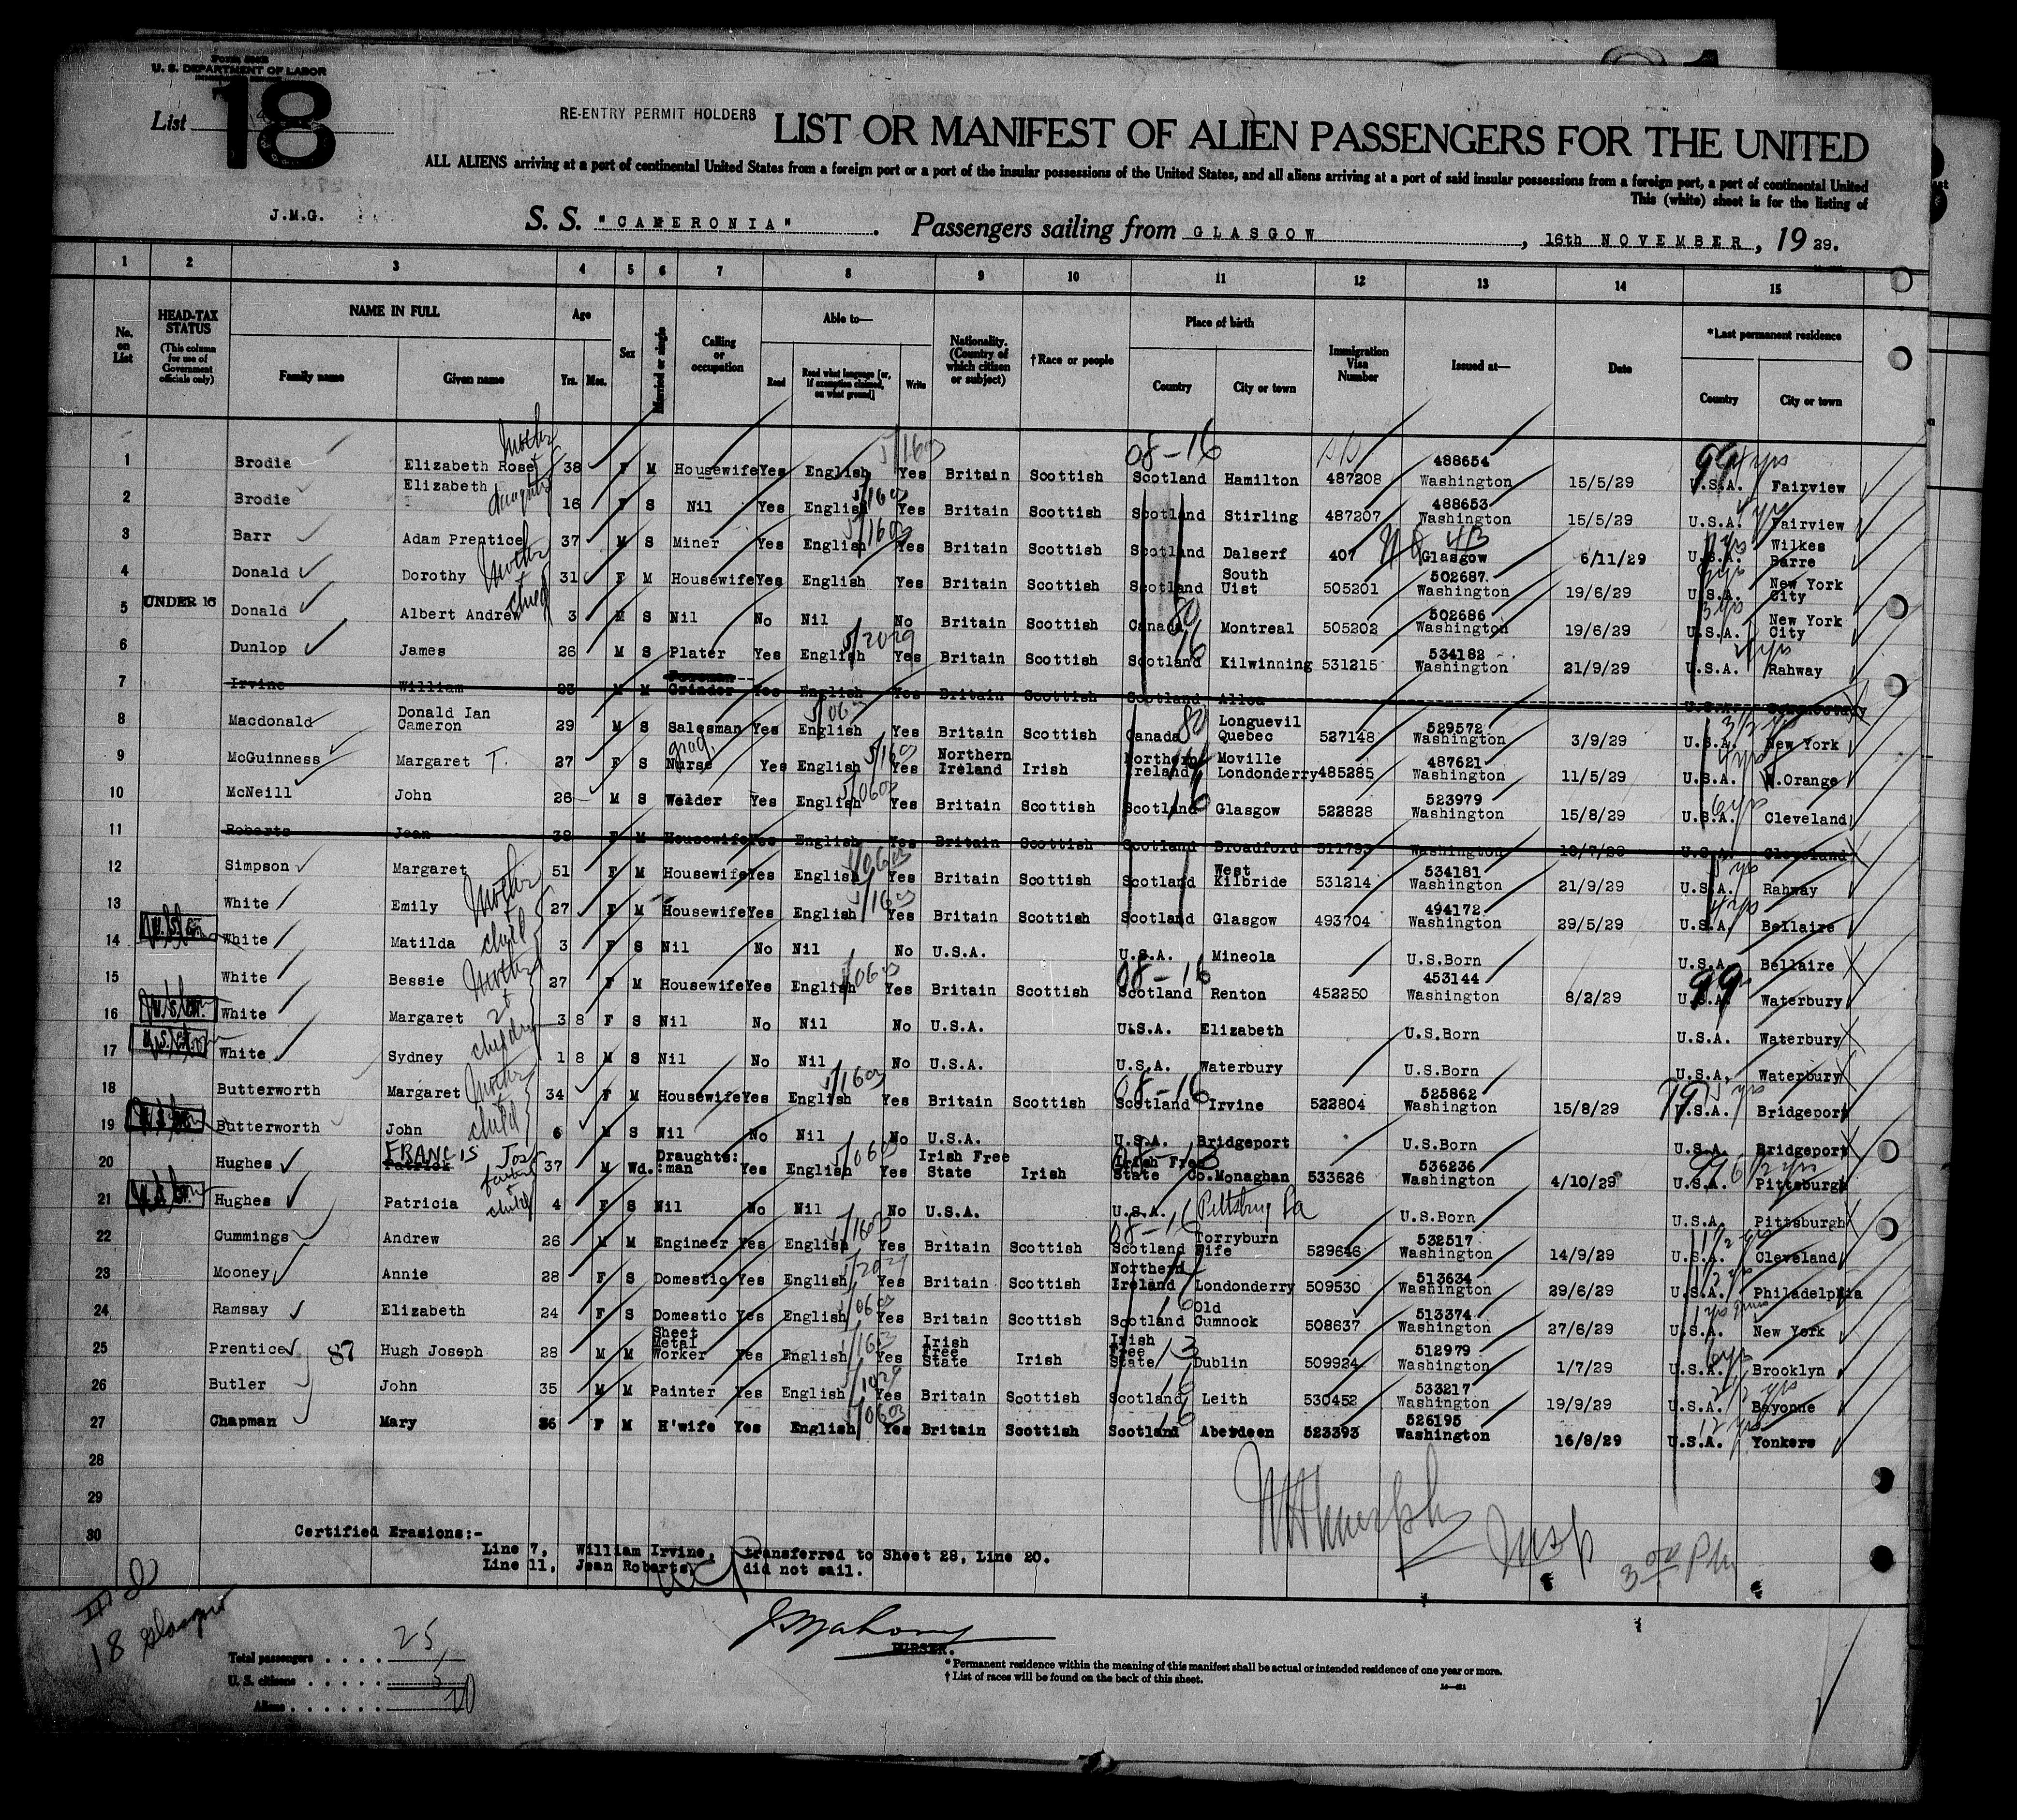 FORM 500B
U. S. DEPARTMENT OF LABOR
List 18
RE-ENTRY PERMIT HOLDERS
LIST OR MANIFEST OF ALIEN PASSENGERS FOR THE UNITED
ALL ALIENS arriving at a port of continental United States from a foreign port or a port of the insular possessions of the United States, and all aliens arriving at a port of said insular possessions from a foreign port, a port of continental United
This (white) sheet is for the listing of
J.M.G.
S. S. "CAMERONIA". Passengers sailing from GLASGOW, 16th NOVEMBER, 19 29.
1 2 3 4 5 6 7 8 9 10 11 12 13 14 15
No. on List
HEAD-TAX STATUS (This column for use of Government officials only)
NAME IN FULL Family name Given name
Age Yrs. Mos.
Sex
Married or single
Calling or occupation
Able to— Read Read what language [or, if exemption claimed, on what ground] Write
Nationality. (Country of which citizen or subject)
†Race or people
Place of birth Country City or town
Immigration Visa Number
Issued at—
Date
*Last permanent residence Country City or town
1 Brodie Elizabeth Rose Mother 38 F M Housewife Yes English 5/1603 Yes Britain Scottish 08-16 Scotland Hamilton 487208 488654 Washington 15/5/29 99 4 yrs U.S.A. Fairview
2 Brodie Elizabeth daughter 16 F S Nil Yes English 5/1603 Yes Britain Scottish Scotland Stirling 487207 488653 Washington 15/5/29 4 yrs U.S.A. Fairview
3 Barr Adam Prentice 37 M S Miner Yes English 5/1603 Yes Britain Scottish Scotland Dalserf 407 Glasgow 6/11/29 U.S.A. Wilkes Barre
4 Donald Dorothy Mother 31 F M Housewife Yes English Yes Britain Scottish Scotland South Uist 505201 502687 Washington 19/6/29 U.S.A. New York City
UNDER 16
5 Donald Albert Andrew child 3 M S Nil No Nil No Britain Scottish Canada 80 Montreal 505202 502686 Washington 19/6/29 3 yrs U.S.A. New York City
6 Dunlop James 26 M S Plater Yes English 5/2029 Yes Britain Scottish Scotland 16 Kilwinning 531215 534182 Washington 21/9/29 U.S.A. Rahway
7 Irvine William 23 M M Foreman Grinder Yes English Yes Britain Scottish Scotland Alloa U.S.A. Schenectady
8 Macdonald Donald Ian Cameron 29 M S Salesman Yes English Yes Britain Scottish Canada 80 Longuevil Quebec 527148 529572 Washington 3/9/29 3 1/2 yrs U.S.A. New York
9 McGuinness Margaret T. 27 F S grad. Nurse Yes English 5/1603 Yes Northern Ireland Irish Northern Ireland Moville Londonderry 485285 487621 Washington 11/5/29 4 yrs U.S.A. W.Orange
10 McNeill John 26 M S Welder Yes English 5/0603 Yes Britain Scottish Scotland 16 Glasgow 522828 523979 Washington 15/8/29 6 yrs U.S.A. Cleveland
11 Roberts Jean 38 F M Housewife Yes English Yes Britain Scottish Scotland Broadford 511793 Washington U.S.A. Cleveland
12 Simpson Margaret 51 F M Housewife Yes English 5/0603 Yes Britain Scottish Scotland West Kilbride 531214 534181 Washington 21/9/29 yrs U.S.A. Rahway
13 White Emily Mother 27 F M Housewife Yes English 5/1603 Yes Britain Scottish Scotland Glasgow 493704 494172 Washington 29/5/29 4 yrs U.S.A. Bellaire
14 White Matilda child 3 F S Nil No Nil No U.S.A. U.S.A. Mineola U.S.Born U.S.A. Bellaire
15 White Bessie Mother 27 F M Housewife Yes English 5/0603 Yes Britain Scottish 08-16 Scotland Renton 452250 453144 Washington 8/2/29 99 U.S.A. Waterbury
16 White Margaret 2 3 8 F S Nil No Nil No U.S.A. U.S.A. Elizabeth U.S.Born U.S.A. Waterbury
17 White Sydney children 1 8 M S Nil No Nil No U.S.A. U.S.A. Waterbury U.S.Born U.S.A. Waterbury
18 Butterworth Margaret Mother 34 F M Housewife Yes English 5/1603 Yes Britain Scottish 08-16 Scotland Irvine 522804 525862 Washington 15/8/29 99 yrs U.S.A. Bridgeport
19 Butterworth John child 6 M S Nil No Nil No U.S.A. U.S.A. Bridgeport U.S.Born U.S.A. Bridgeport
20 Hughes FRANCIS Jos Patrick father 37 M Wd. Draughts: :man Yes English 5/0603 Yes Irish Free State Irish Irish Free State Co.Monaghan 533626 536236 Washington 4/10/29 99 6 1/2 yrs U.S.A. Pittsburgh
21 Hughes Patricia child 4 F S Nil No Nil No U.S.A. U.S.A. Pittsburg Pa U.S.Born U.S.A. Pittsburgh
22 Cummings Andrew 26 M M Engineer Yes English 5/1603 Yes Britain Scottish 08-16 Scotland Torryburn Fife 529646 532517 Washington 14/9/29 1 1/2 yrs U.S.A. Cleveland
23 Mooney Annie 28 F S Domestic Yes English 5/2029 Yes Britain Scottish Northern Ireland Londonderry 509530 513634 Washington 29/6/29 U.S.A. Philadelphia
24 Ramsay Elizabeth 24 F S Domestic Yes English 5/0603 Yes Britain Scottish 16 Scotland Old Cumnock 508637 513374 Washington 27/6/29 U.S.A. New York
25 Prentice 87 Hugh Joseph 28 M M Sheet Metal Worker Yes English 5/1603 Yes Irish Free State Irish Irish Free State 13 Dublin 509924 512979 Washington 1/7/29 6 yrs U.S.A. Brooklyn
26 Butler John 35 M M Painter Yes English Yes Britain Scottish Scotland 16 Leith 530452 533217 Washington 19/9/29 2 1/2 yrs U.S.A. Bayonne
27 Chapman Mary 36 F M H'wife Yes English 5/0603 Yes Britain Scottish Scotland 16 Aberdeen 523393 526195 Washington 16/8/29 12 yrs U.S.A. Yonkers
28
29
30
Certified Erasions:-
Line 7, William Irvine, transferred to Sheet 28, Line 20.
Line 11, Jean Roberts, did not sail.
Insp
3 00 PM
18 Glasgow
PURSER.
Total passengers . . . . 25
U. S. citizens . . . . . 5
Aliens . . . . . . 20
* Permanent residence within the meaning of this manifest shall be actual or intended residence of one year or more.
† List of races will be found on the back of this sheet.